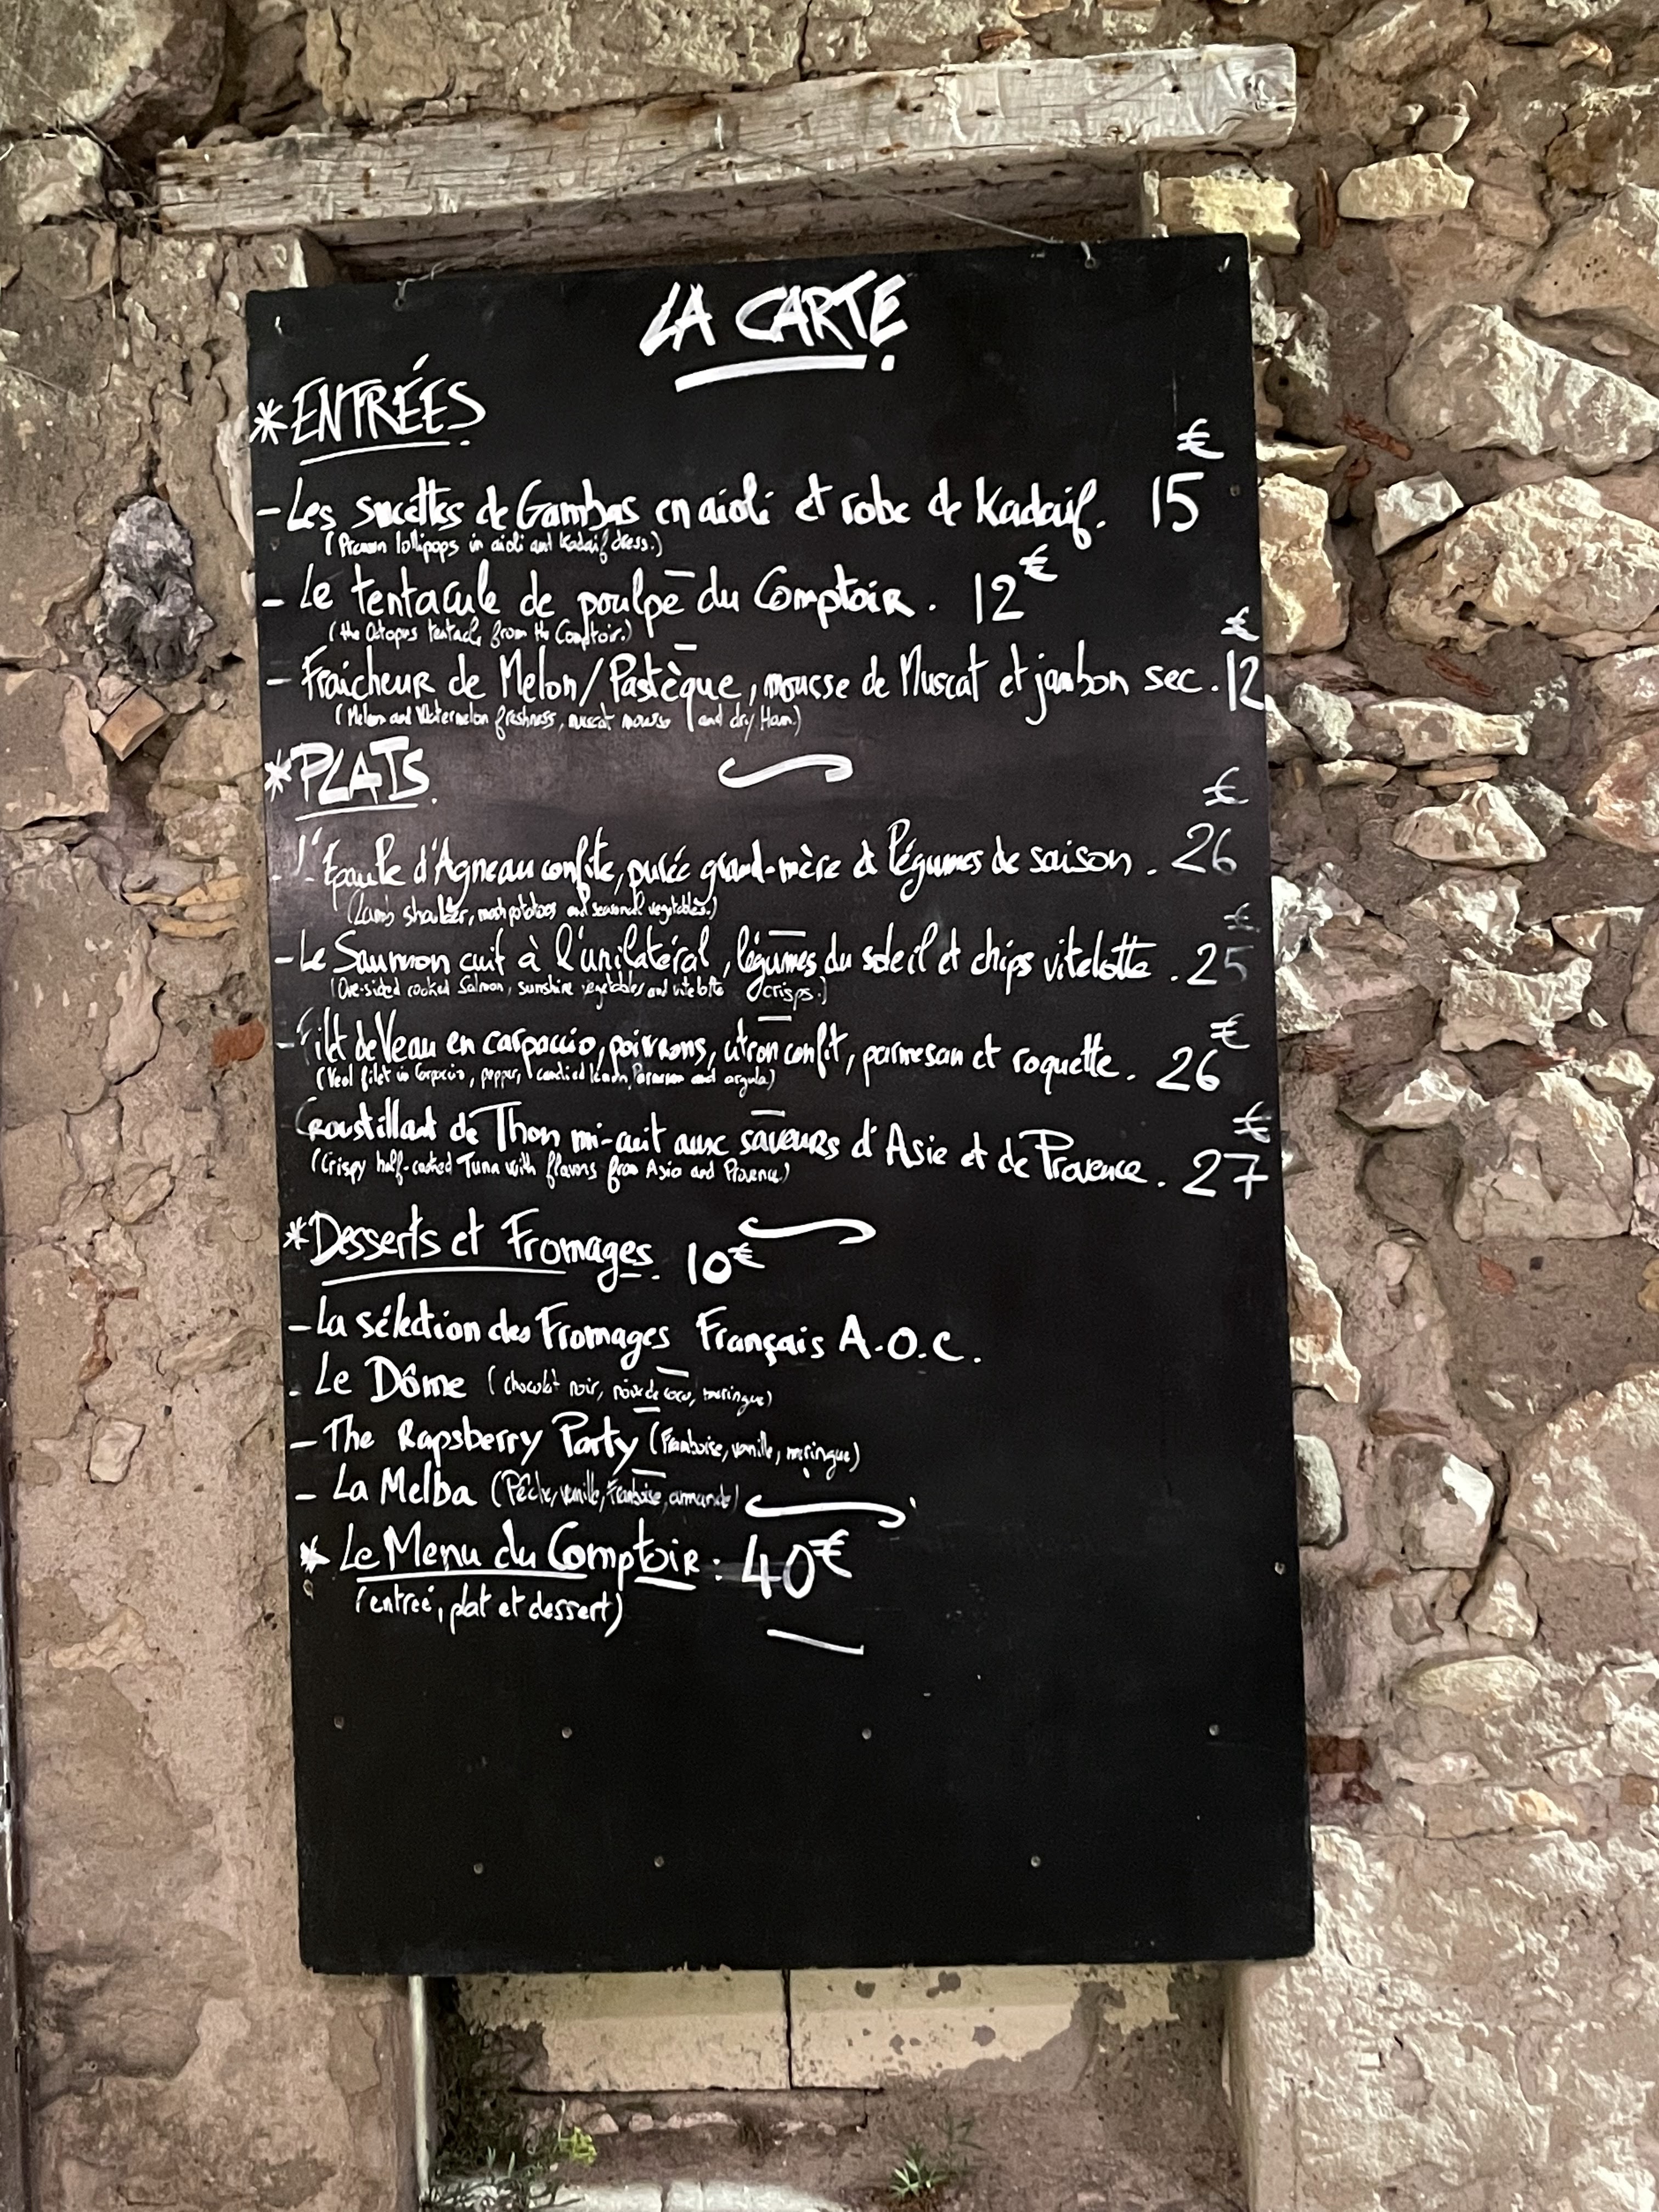 LA CARTE.
*ENTRÉES.
- Les sucettes de Gambas en aïoli et robe de Kadaïf. 15€
(Prawn lollipops in aïoli and Kadaif dress.)
- Le tentacule de poulpe du Comptoir. 12€
(the Octopus tentacle from the Comptoir.)
- Fraicheur de Melon/Pastèque, mousse de Muscat et jambon sec. 12€
(Melon and Watermelon freshness, muscat mousse and dry Ham.)
*PLATS.
- l'Epaule d'Agneau confite, purée grand-mère et légumes de saison. 26€
(Lamb shoulder, mash potatoes and seasonal vegetables.)
- Le Saumon cuit à l'unilatéral, légumes du soleil et chips vitelotte. 25€
(One-sided cooked Salmon, sunshine vegetables and vitelotte crisps.)
- Filet de Veau en carpaccio, poivrons, citron confit, parmesan et roquette. 26€
(Veal filet in Carpaccio, pepper, candied lemon, Parmesan and arugula)
Croustillant de Thon mi-cuit aux saveurs d'Asie et de Provence. 27€
(Crispy half-cooked Tuna with flavors from Asia and Provence.)
*Desserts et Fromages. 10€
- La sélection des Fromages Français A.O.C.
- Le Dôme (chocolat noir, noix de coco, meringue)
- The Rapsberry Party (Framboise, vanille, meringue)
- La Melba (Pêche, vanille, Framboise, amande)
* Le Menu du Comptoir : 40€
(entreé, plat et dessert)